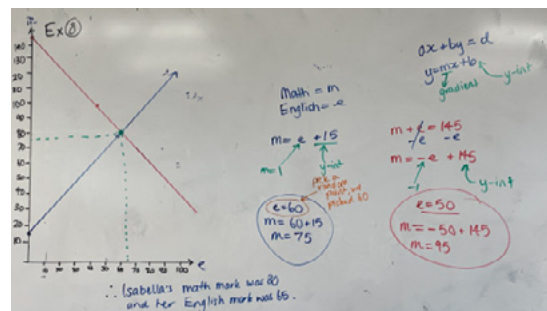 Ex 8
m
140
130
120
110
100
90
80
70
60
50
40
30
20
10
10 20 30 40 50 60 70 80 90 100 e
∴ Isabella's math mark was 80
and her English mark was 65.
Math = m
English = e
m = e + 15
m=1
y-int
pick a
random
mark, we
picked 60
e = 60
m = 60 + 15
m = 75
ax + by = d
y = mx + b
y-int
gradient
m + e = 145
-e -e
m = -e + 145
-1
y-int
e = 50
m = -50 + 145
m = 95